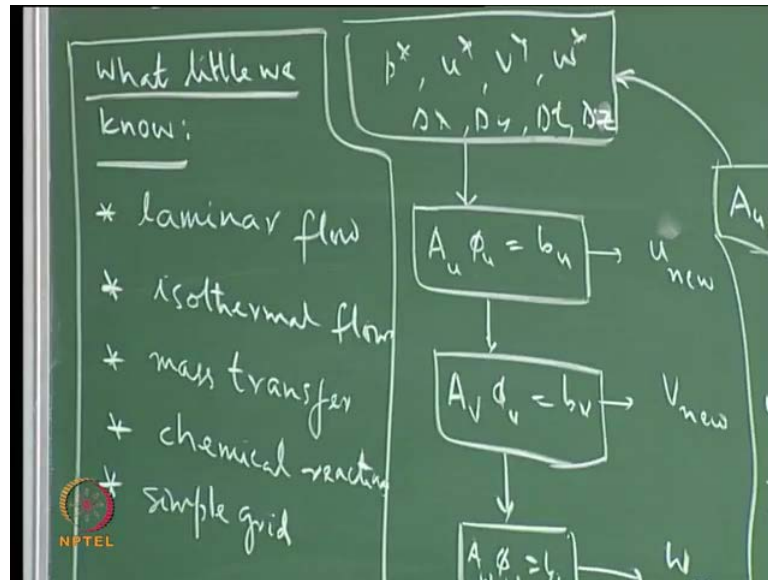 What little we
know:
* laminar flow
* isothermal flow
* mass transfer
* chemical reaction
* simple grid
p*, u*, v*, w*
Δx, Δy, Δt, Δz
A_u ϕ_u = b_u → u_new
A_v ϕ_v = b_v → V_new
A_w ϕ_w = b → W
A_u
NPTEL